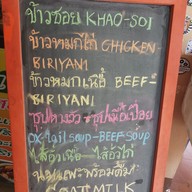 ข้าวซอย KHAO-SOI
ข้าวหมกไก่ CHICKEN-
BIRIYANI
ข้าวหมกเนื้อ BEEF
BIRIYANI
ซุปหางวัว ซุปเนื้อเปื่อย
OX-tail soup-BEEF SOUP
ไส้อั่วเนื้อ-ไส้อั่วไก่
นมแพะพร้อมดื่ม
GOAT MILK